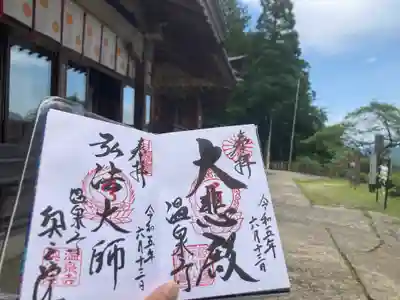 奉拝
大悲殿
温泉寺
令和五年
六月十三日
奉拝
弘法大師
温泉寺
奥之院
令和五年
六月十三日
温泉寺